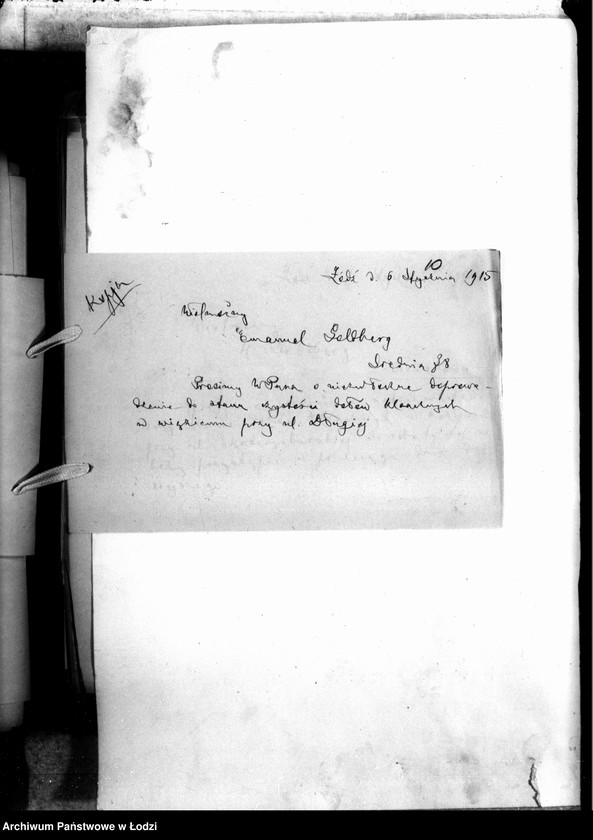 10
Łódź d. 6 Stycznia 1915
Kopja
Wielmożny
Emanuel Goldberg
Średnia 78
Prosimy WPana o niezwłoczne doprowa-
dzenie do stanu czystości dołów kloacznych
w więzieniu przy ul. Długiej
Archiwum Państwowe w Łodzi